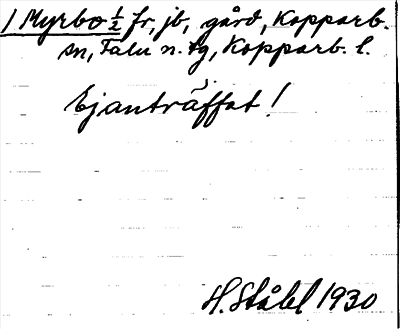 1 Myrbo ½ fr, jb, gård, Kopparb.
sn, Falu n. tg, Kopparb. l.
Ej anträffat!
H. Ståhl 1930